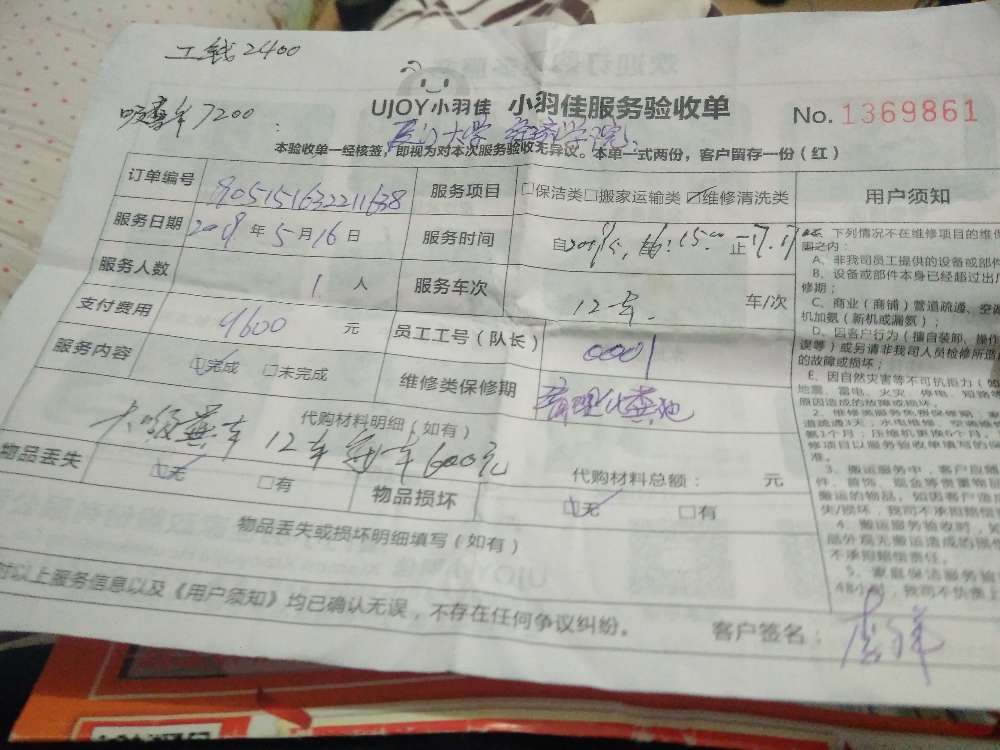 工钱2400
吸粪车7200
UJOY小羽佳 小羽佳服务验收单 No. 1369861
大学 经济学院
本验收单一经核签,即视为对本次服务验收无异议。本单一式两份,客户留存一份(红)
订单编号 服务项目 □保洁类□搬家运输类☑维修清洗类 用户须知
服务日期 年5月16日 服务时间 自 15:00 止17:
下列情况不在维修项目的维保
围之内:
A、非我司员工提供的设备或部件
B、设备或部件本身已经超过出厂
修期;
服务人数 1人 服务车次 12车 车/次
C、商业(商铺)管道疏通、空调
机加氨(新机或漏氨);
支付费用 9600 元 员工工号(队长) 0001
D、因客户行为(擅自装卸、操作
误等)或另请非我司人员检修所造
的故障或损坏;
服务内容 ☑完成 □未完成 维修类保修期 清理化粪池
E、因自然灾害等不可抗拒力(
地震、雷电、火灾、停电、短路等
原因造成的故障或损坏。
代购材料明细(如有)
大吸粪车12车每车600元
代购材料总额: 元
物品丢失 ☑无 □有 物品损坏 ☑无 □有
3、搬运服务中,客户应随
件、首饰、现金等贵重物品
搬运的物品,如因客户造
失/损坏,我司不承担赔偿
物品丢失或损坏明细填写(如有)
4、搬运服务验收时,如
部外观无搬运造成的损
不承担赔偿责任。
5、家庭保洁服务验
对以上服务信息以及《用户须知》均已确认无误,不存在任何争议纠纷。
客户签名: